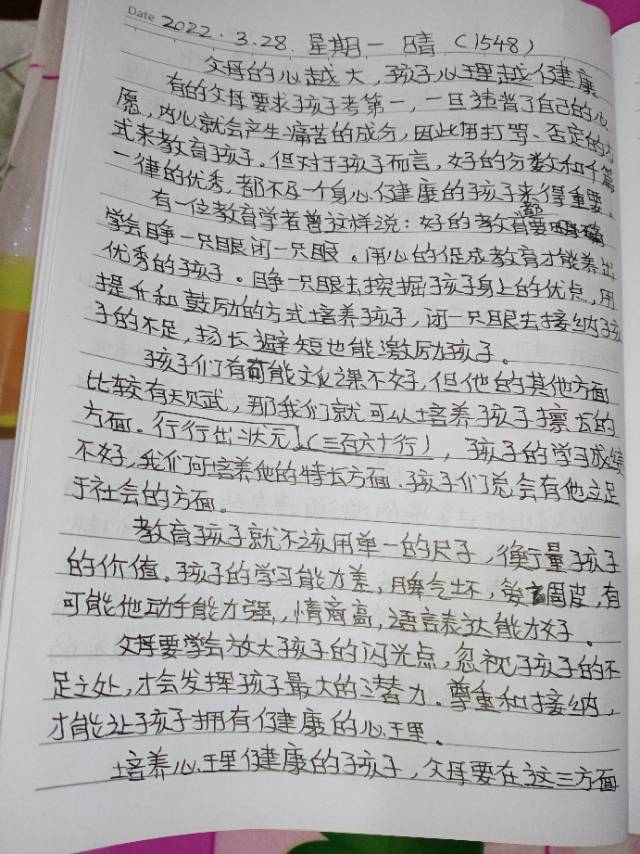 Date 2022.3.28.星期一 晴(1548)
父母的心越大,孩子心理越健康
有的父母要求孩子考第一,一旦违背了自己的心
愿,内心就会产生痛苦的成分,因此用打骂、否定的方
式来教育孩子。但对于孩子而言,好的分数和千篇
一律的优秀,都不及一个身心健康的孩子来得重要。
有一位教育学者曾这样说:好的教育要都
学会睁一只眼闭一只眼。用心的促成教育才能养出
优秀的孩子。睁一只眼去挖掘孩子身上的优点,用
提升和鼓励的方式培养孩子,闭一只眼去接纳孩
子的不足,扬长避短也能激励孩子。
孩子们有可能文化课不好,但他的其他方面
比较有天赋,那我们就可以培养孩子擅长的
方面。行行出状元(三百六十行),孩子的学习成绩
不好,我们可培养他的特长方面.孩子们总会有他立足
于社会的方面。
教育孩子就不该用单一的尺子,衡量孩子
的价值。孩子的学习能力差,脾气坏,调皮,有
可能他动手能力强,情商高,语言表达能力好。
父母要学会放大孩子的闪光点,忽视孩子的不
足之处,才会发挥孩子最大的潜力。尊重和接纳,
才能让孩子拥有健康的心理。
培养心理健康的孩子,父母要在这三方面